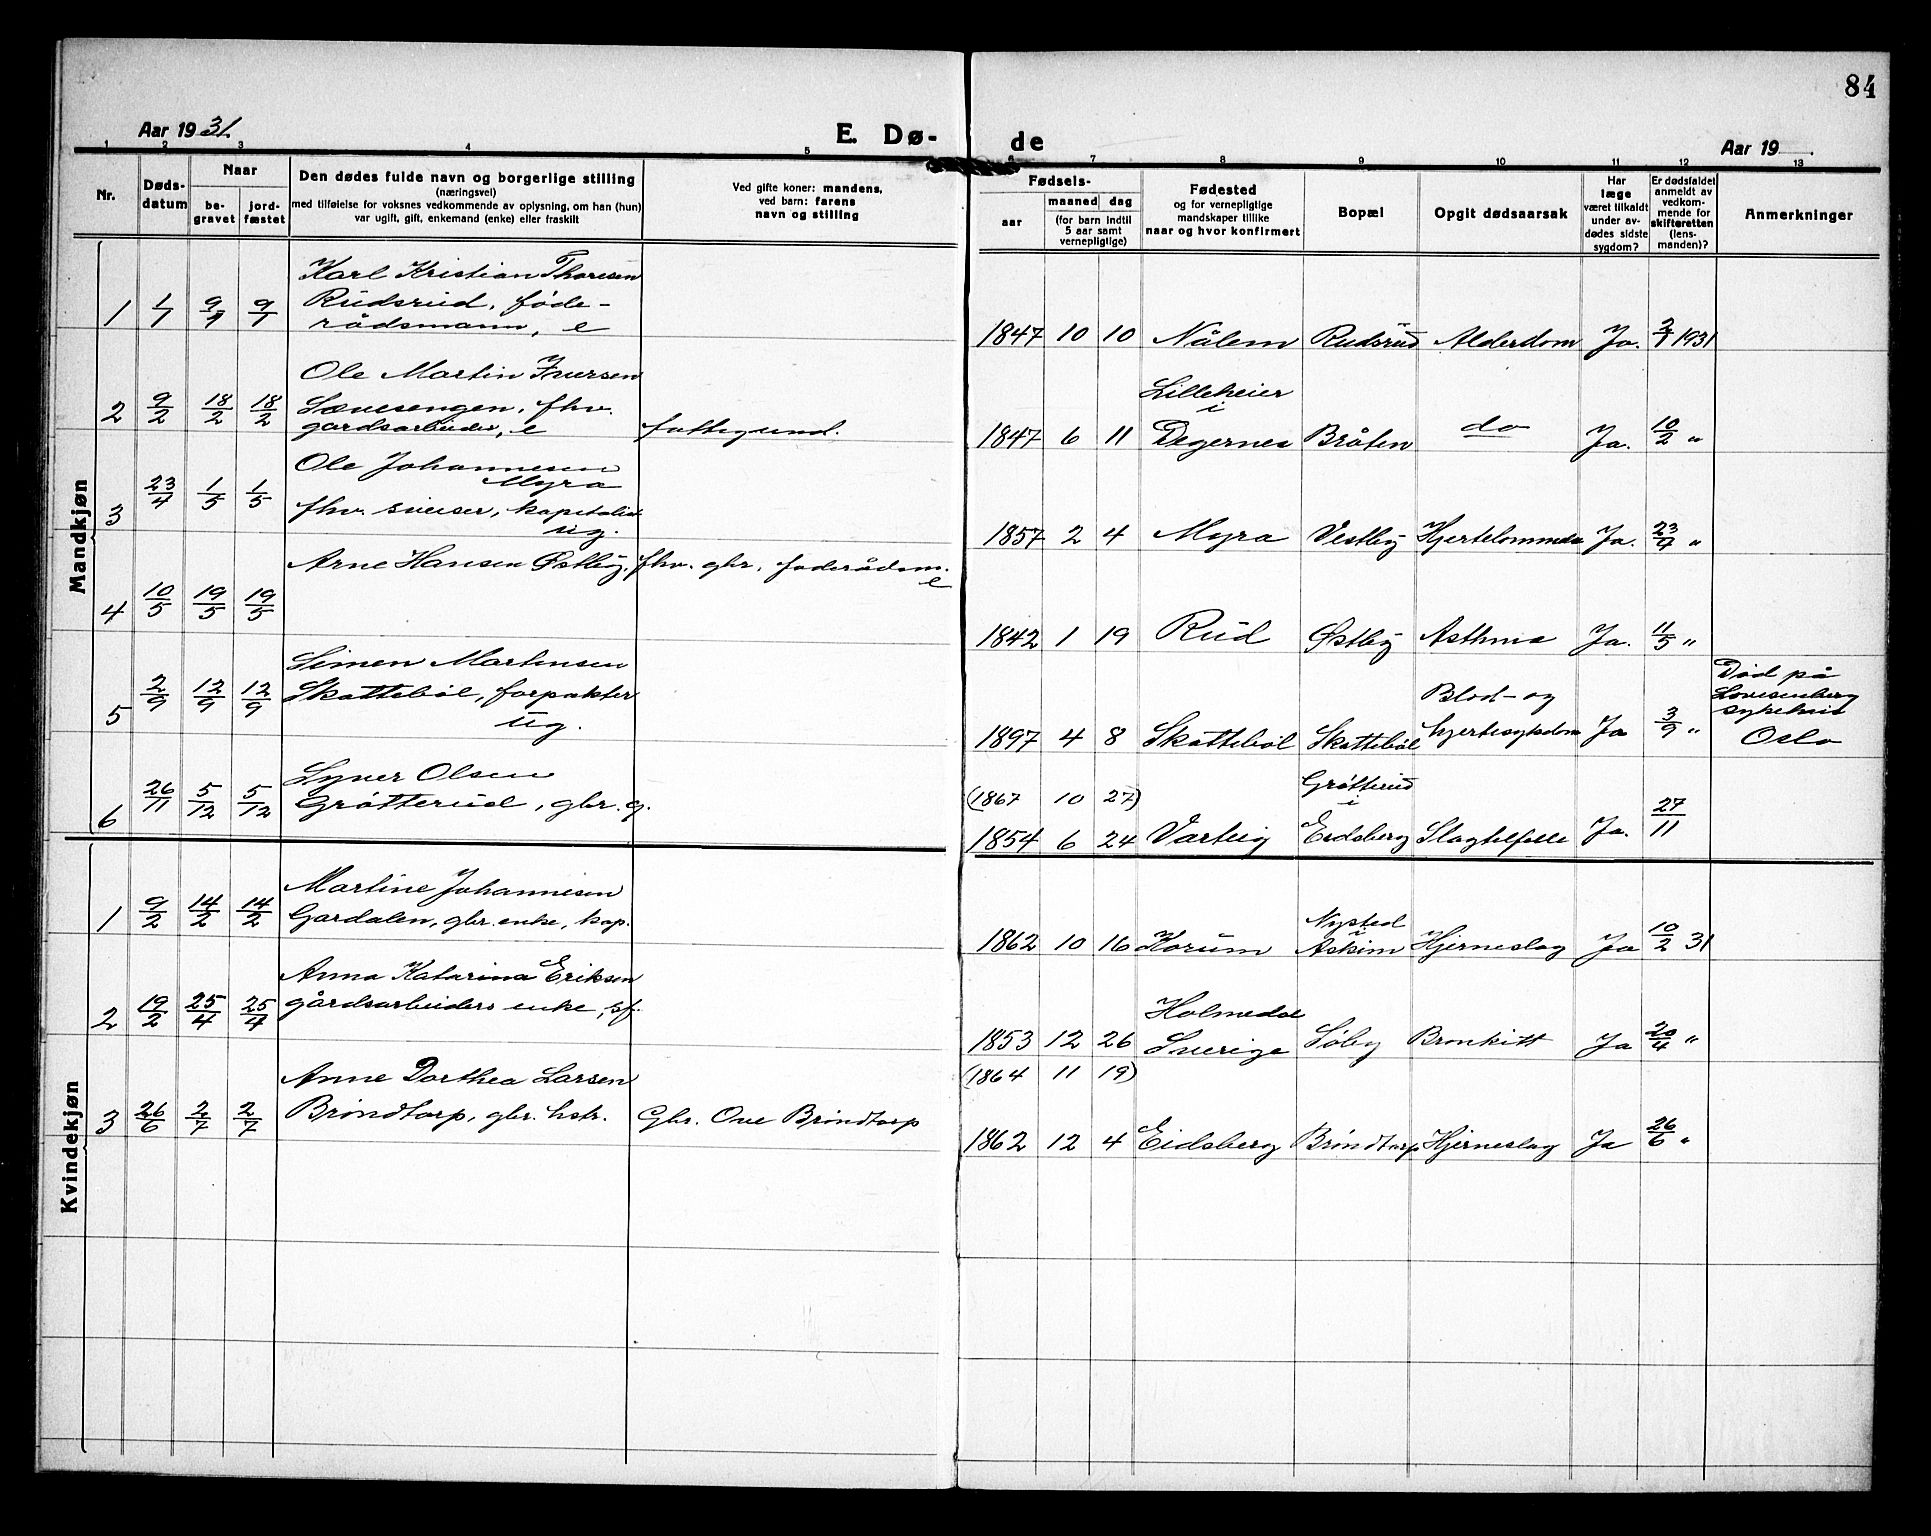 84
Aar 1931.
E. Dø-
de
Aar 19
1 2 3 4 5 6 7 8 9 10 11 12 13
Nr.
Døds-
datum
Naar
be-
gravet
jord-
fæstet
Den dødes fulde navn og borgerlige stilling
(næringsvei)
med tilføielse for voksnes vedkommende av oplysning, om han (hun)
var ugift, gift, enkemand (enke) eller fraskilt
Ved gifte koner: mandens,
ved barn: farens
navn og stilling
Fødsels-
aar
maaned
dag
(for barn indtil
5 aar samt
vernepligtige)
Fødested
og for vernepligtige
mandskaper tillike
naar og hvor konfirmert
Bopæl
Opgit dødsaarsak
Har
læge
været tilkaldt
under av-
dødes sidste
sygdom?
Er dødsfaldet
anmeldt av
vedkom-
mende for
skifteretten
(lens-
manden)?
Anmerkninger
Mandkjøn
Karl Kristian Thoresen
1 1/1 9/1 9/1 Rudsrud, føde-
rådsmann, e
1847 10 10 Nålem Rudsrud Alderdom Ja. 2/1 1931
Ole Martin Iversen
2 9/2 18/2 18/2 Sævesengen, fhv.
gardsarbeider, e fattigund.
Lilleheier
i
1847 6 11 Degernes Bråten do Ja. 10/2 "
Ole Johannesen
Myra
3 23/4 1/5 1/5 fhv. sveiser, kapitalist
ug.
1857 2 4 Myra Vestby Hjertelammelse Ja. 23/4 "
Arne Hansen Østby, fhv. gbr., føderådsm.
e
4 10/5 19/5 19/5
1842 1 19 Rud Østby Asthma Ja. 11/5 "
Simen Martinsen
5 2/9 12/9 12/9 Skattebøl, forpakter
ug.
Blod- og
1897 4 8 Skattebøl Skattebøl hjertesykdom Ja 3/9 "
Død på
Lovisenberg
sykehus
Oslo
Syver Olsen
6 26/11 5/12 5/12 Grøtterud, gbr. g.
(1867 10 27) Grøtterud
i
1854 6 24 Varteig Eidsberg Slagtilfelle Ja. 27/11
Kvindekjøn
Martine Johannesen
1 9/2 14/2 14/2 Gardalen, gbr. enke, kap.
Nysted
i
1862 10 16 Korum Askim Hjerneslag Ja 10/2 31
Anna Katarina Eriksen
2 19/2 25/4 25/4 gårdsarbeiders enke, sf.
Holmedal
1853 12 26 Sverige Søby Bronkitt Ja 20/4 "
(1864 11 19)
Anne Dorthea Larsen
3 26/6 2/7 2/7 Brøndtorp, gbr. hstr. Gbr. Ove Brøndtorp
1862 12 4 Eidsberg Brøndtorp Hjerneslag Ja 26/6 "